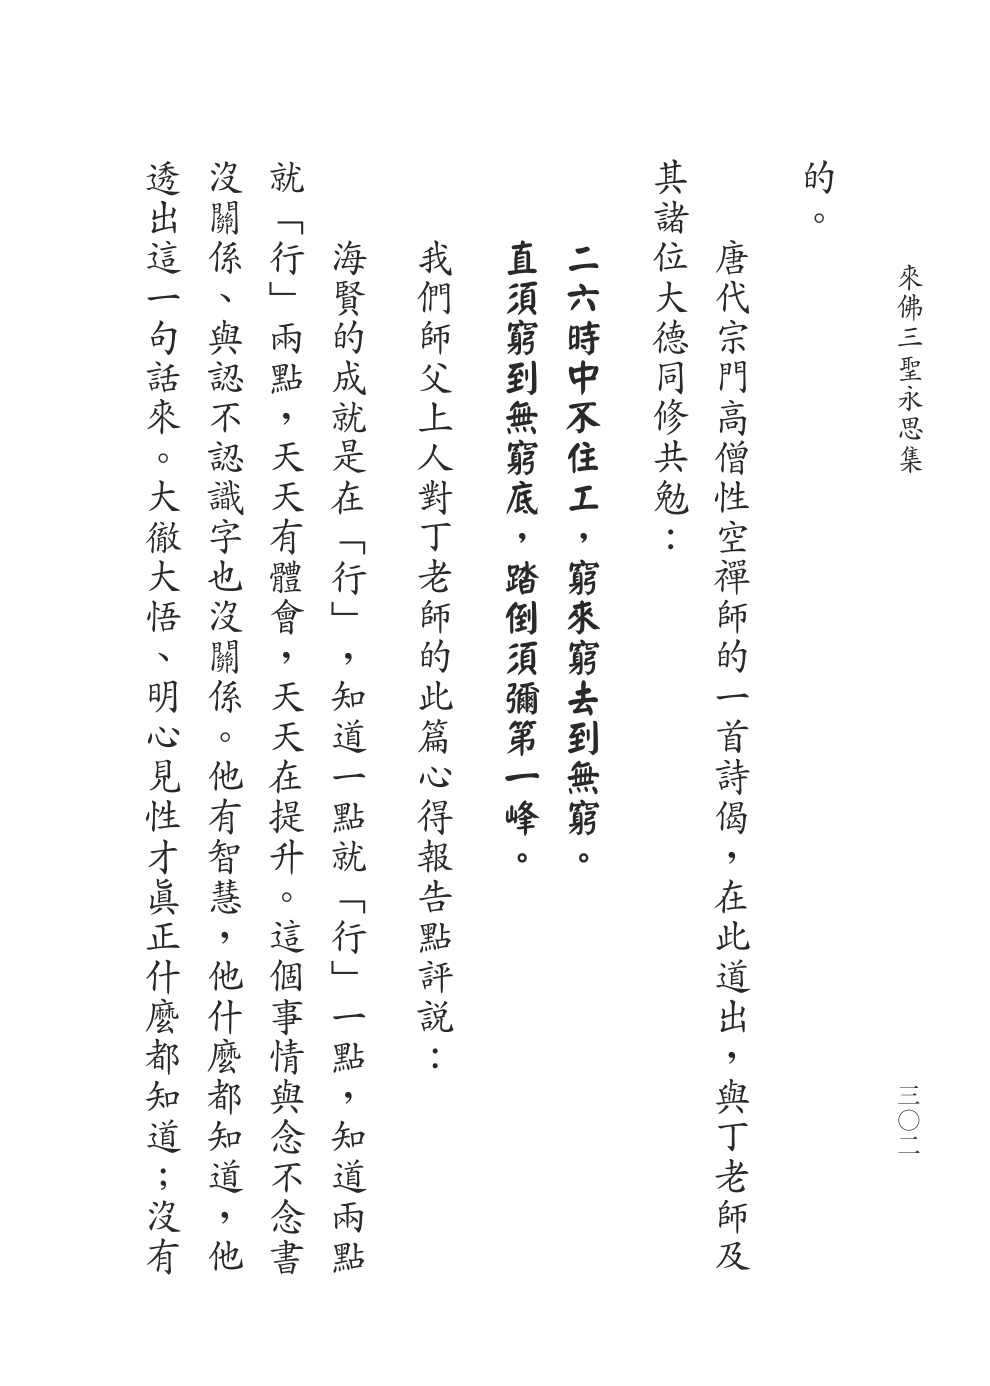 來佛三聖永思集
三〇二
的。
唐代宗門高僧性空禪師的一首詩偈，在此道出，與丁老師及
其諸位大德同修共勉：
二六時中不住工，窮來窮去到無窮。
直須窮到無窮底，踏倒須彌第一峰。
我們師父上人對丁老師的此篇心得報告點評説：
海賢的成就是在「行」，知道一點就「行」一點，知道兩點
就「行」兩點，天天有體會，天天在提升。這個事情與念不念書
沒關係、與認不認識字也沒關係。他有智慧，他什麼都知道，他
透出這一句話來。大徹大悟、明心見性才眞正什麼都知道；沒有